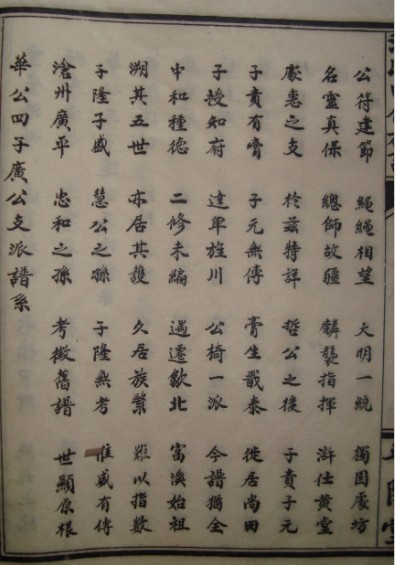 公符建節 繩繩相望 大明一統 獨因處坊
名靈真保 總師故疆 麟襲指揮 澣仕黄堂
處惠之支 於兹特詳 哲公之後 子賁子元
子賁有膏 子元無傳 膏生戩泰 徙居尚田
子授知府 達單旌川 公椅一派 今譜猶全
中和種德 二修未編 遇遷歙北 富溪始祖
朔其五世 亦居其護 久居族繁 難以指數
子隆子盛 慧公之孫 子隆無考 惟盛有傳
滄州廣平 忠和之孫 考徵舊譜 世顯原根
華公四子廣公支派譜系